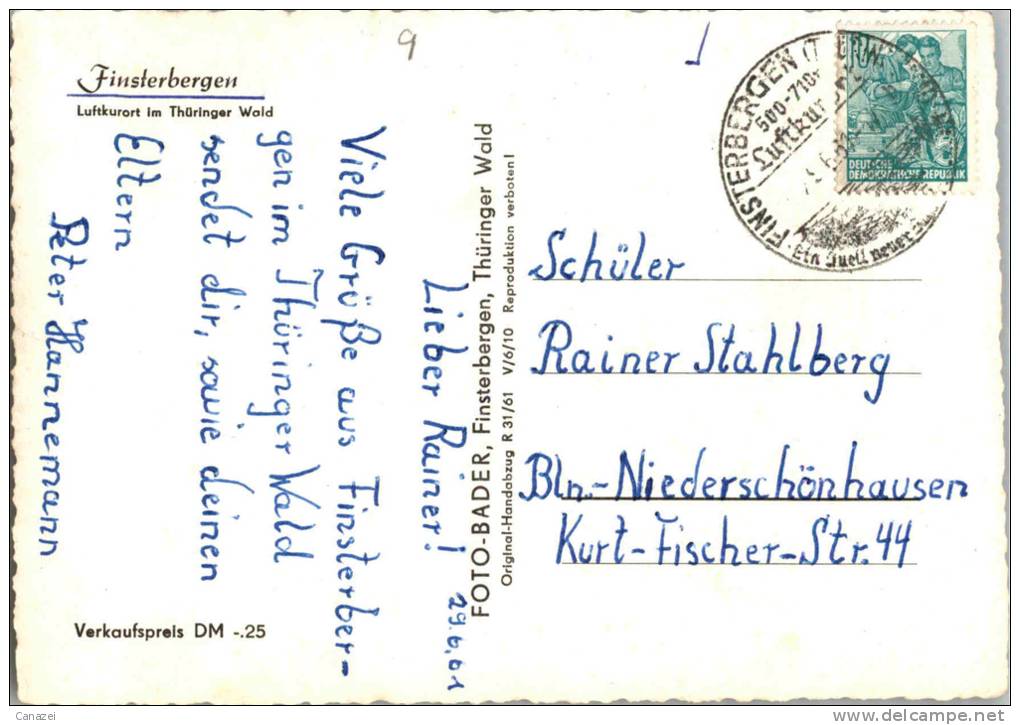 9
Finsterbergen
Luftkurort im Thüringer Wald
29.6.61
Lieber Rainer!
Viele Grüße aus Finsterber-
gen im Thüringer Wald
sendet dir, sowie deinen
Eltern
Peter Hannemann
Verkaufspreis DM -.25
FOTO-BADER, Finsterbergen, Thüringer Wald
Original-Handabzug R 31/61 V/6/10 Reproduktion verboten!
FINSTERBERGEN (THÜR. W.
500-710
Luftkur
DEUTSCHE
DEMOKRATISCHE REPUBLIK
Schüler
Rainer Stahlberg
Bln.-Niederschönhausen
Kurt-Fischer-Str. 44
Canazei
www.delcampe.net